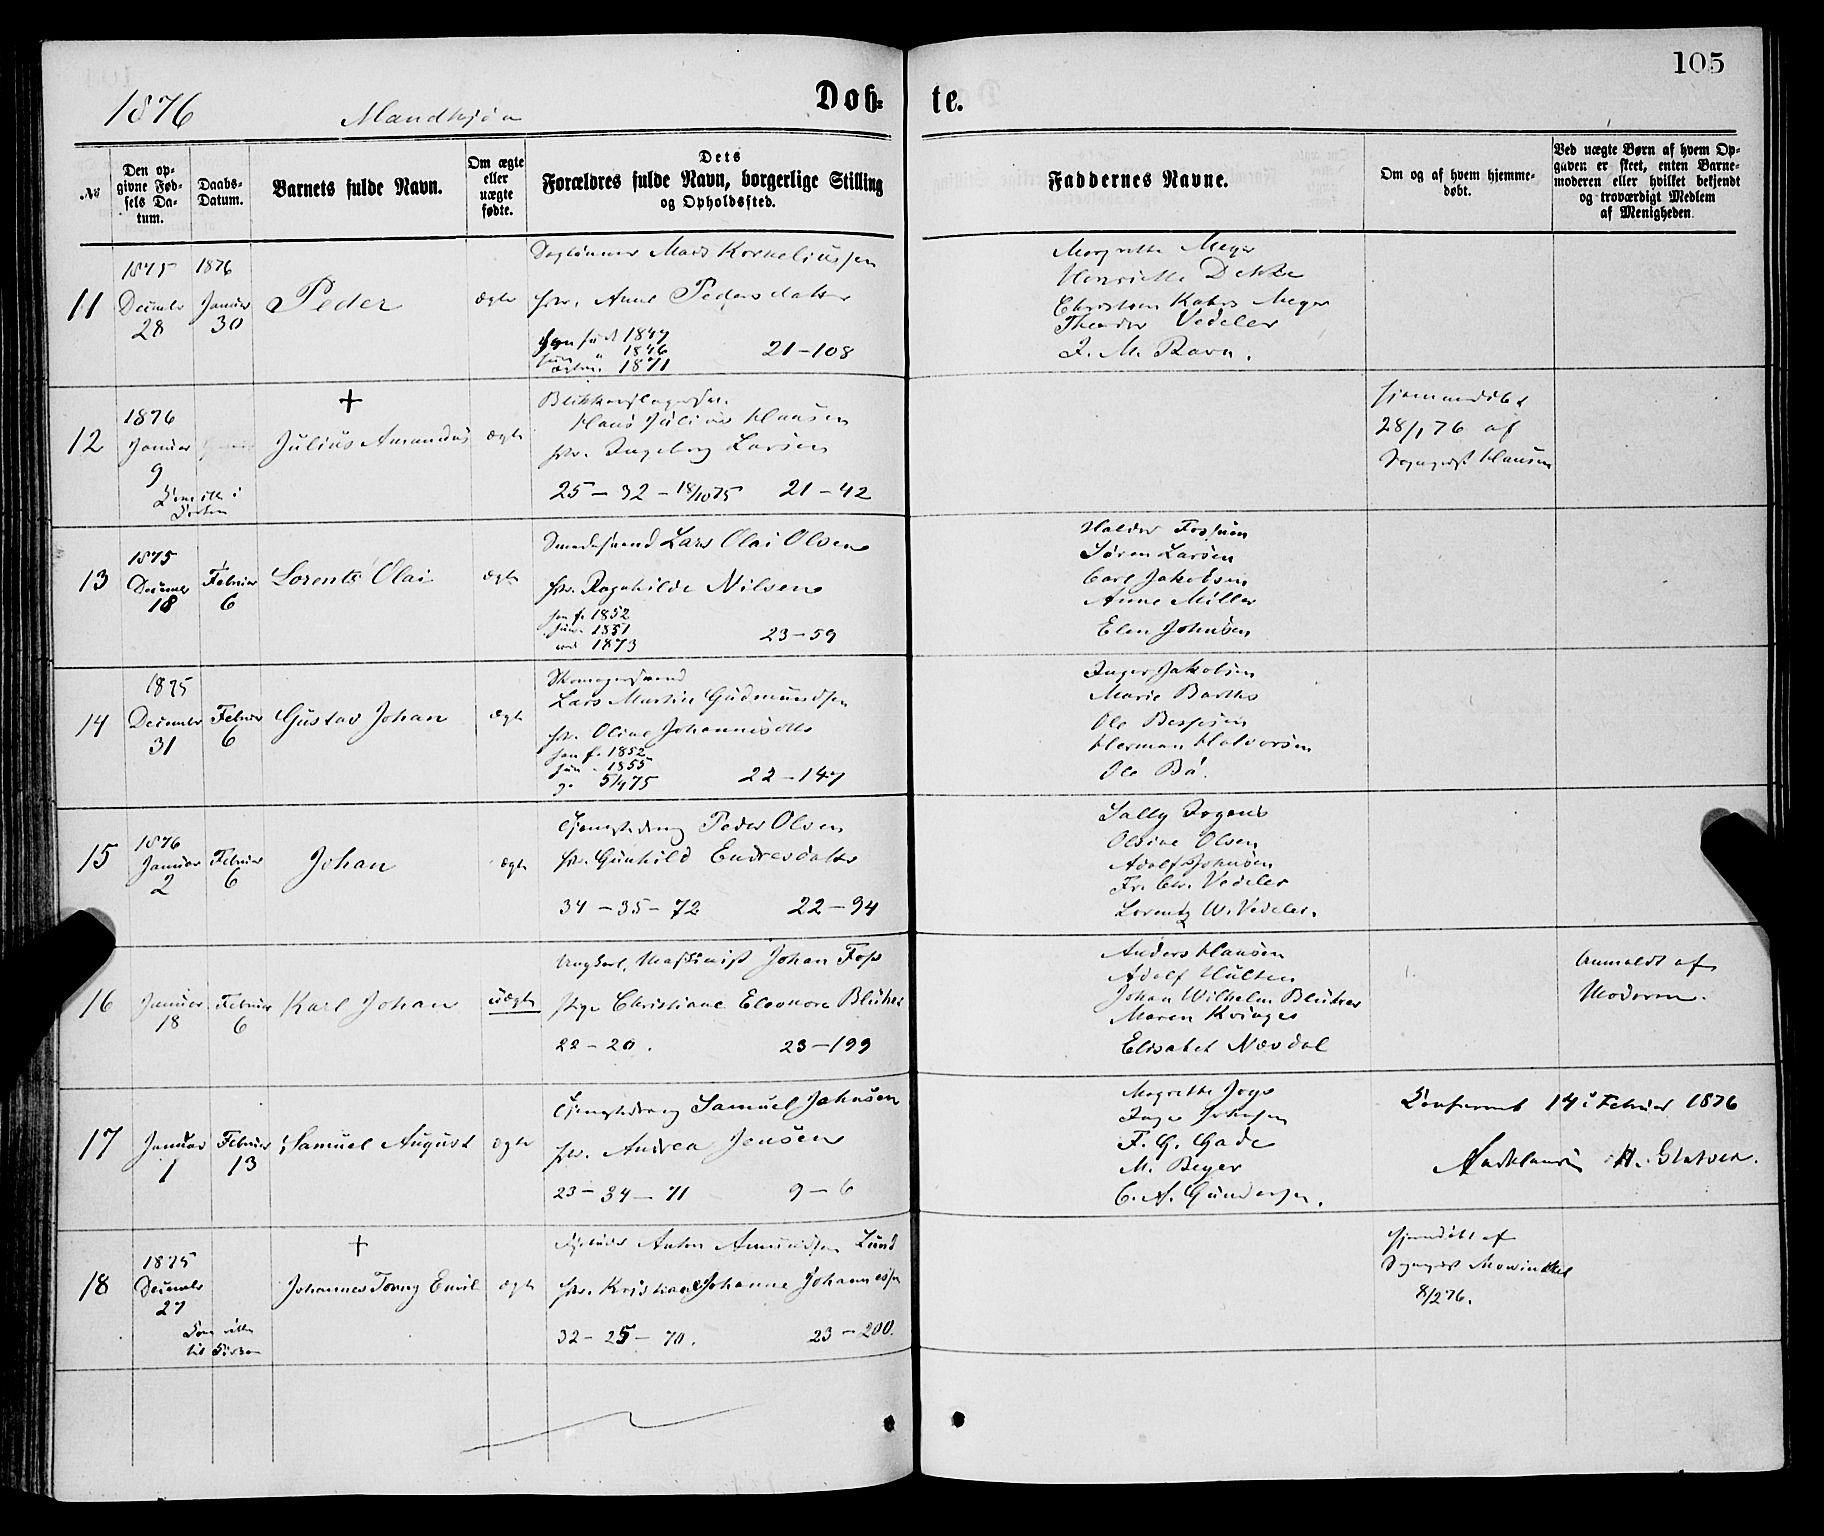 105
1876 Mandkjøn Døb- te.
№
Den opgivne Fødsels Datum.
Daabs-Datum.
Barnets fulde Navn.
Om ægte eller uægte fødte.
Dets Forældres fulde Navn, borgerlige Stilling og Opholdssted.
Faddernes Navne.
Om og af hvem hjemmedøbt.
Ved uægte Børn af hvem Opgaven er skeet, enten Barnemoderen eller hvilket bekjendt og troværdigt Medlem af Menigheden.
11
1875
December
28
1876
Januar
30
Peder
ægte
Daglønner Mads Korneliussen
Anne Pedersdatter
1847
1846
1871
21-108
Margrethe Meyer
Henriette Dekke
Christian Kahrs Meyer
Theodor Vedeler
J. M. Ravn.
12
1876
Januar
9
Kom ikke i
Kirken
+
Julius Amandus
ægte
Hans Julius Hansen
Ingeborg Larsen
25-32-18/10 75 21-42
hjemmedøbt
28/1 76 af
Sogneprst Hansen
13
1875
December
18
Februar
6
Lorents Olai
ægte
Smedesvend Lars Olai Olsen
Ragnhilde Nilsen
1852
1851
1873
23-59
Halvor Fossum
Søren Larsen
Carl Jakobsen
Anne Miller
Elen Johnsen
14
1875
December
31
Februar
6
Gustav Johan
ægte
Skomagersvend
Lars Martin Gudmundsen
Oline Johannesdtr
1852
1855
75
22-147
Inger Jakobsen
Marie Barths
Ole Bessesen
Herman Halvorsen
Ole Bø.
15
1876
Januar
2
Februar
6
Johan
ægte
Peder Olsen
Gunhild Endresdatter
34-35-72 22-94
Sally Irgens
Olsine Olsen
Adolf Johnsen
Fr. Chr. Vedeler
Lorentz W. Vedeler.
16
Januar
18
Februar
6
Karl Johan
uægte
Ungkarl, Maskinist Johan Foss
Pige Christiane Eleonore Blüher
22-20. 23-199
Anders Hansen
Adolf Hulten
Johan Wilhelm Blüher
Maren Kvinges
Elisabet Nævdal
Anmeldt af
Moderen.
17
Januar
1
Februar
13
Samuel August
ægte
Samuel Johnsen
Andrea Jensen
23-34-71 9-6
Magrethe Joys
Inger Johnsen
F. G. Gade
M. Beyer
C. A. Gundersen.
Konfereret 14 Februar 1876
18
1875
December
27
Kom ikke
til Kirken
+
Johannes Tonny Emil
ægte
Anton Amundsen Lund
Kristiane Johanne Johannessen
32-25-70. 23-200.
hjemdøbt af
Sogneprst Mowinkel
8/2 76.